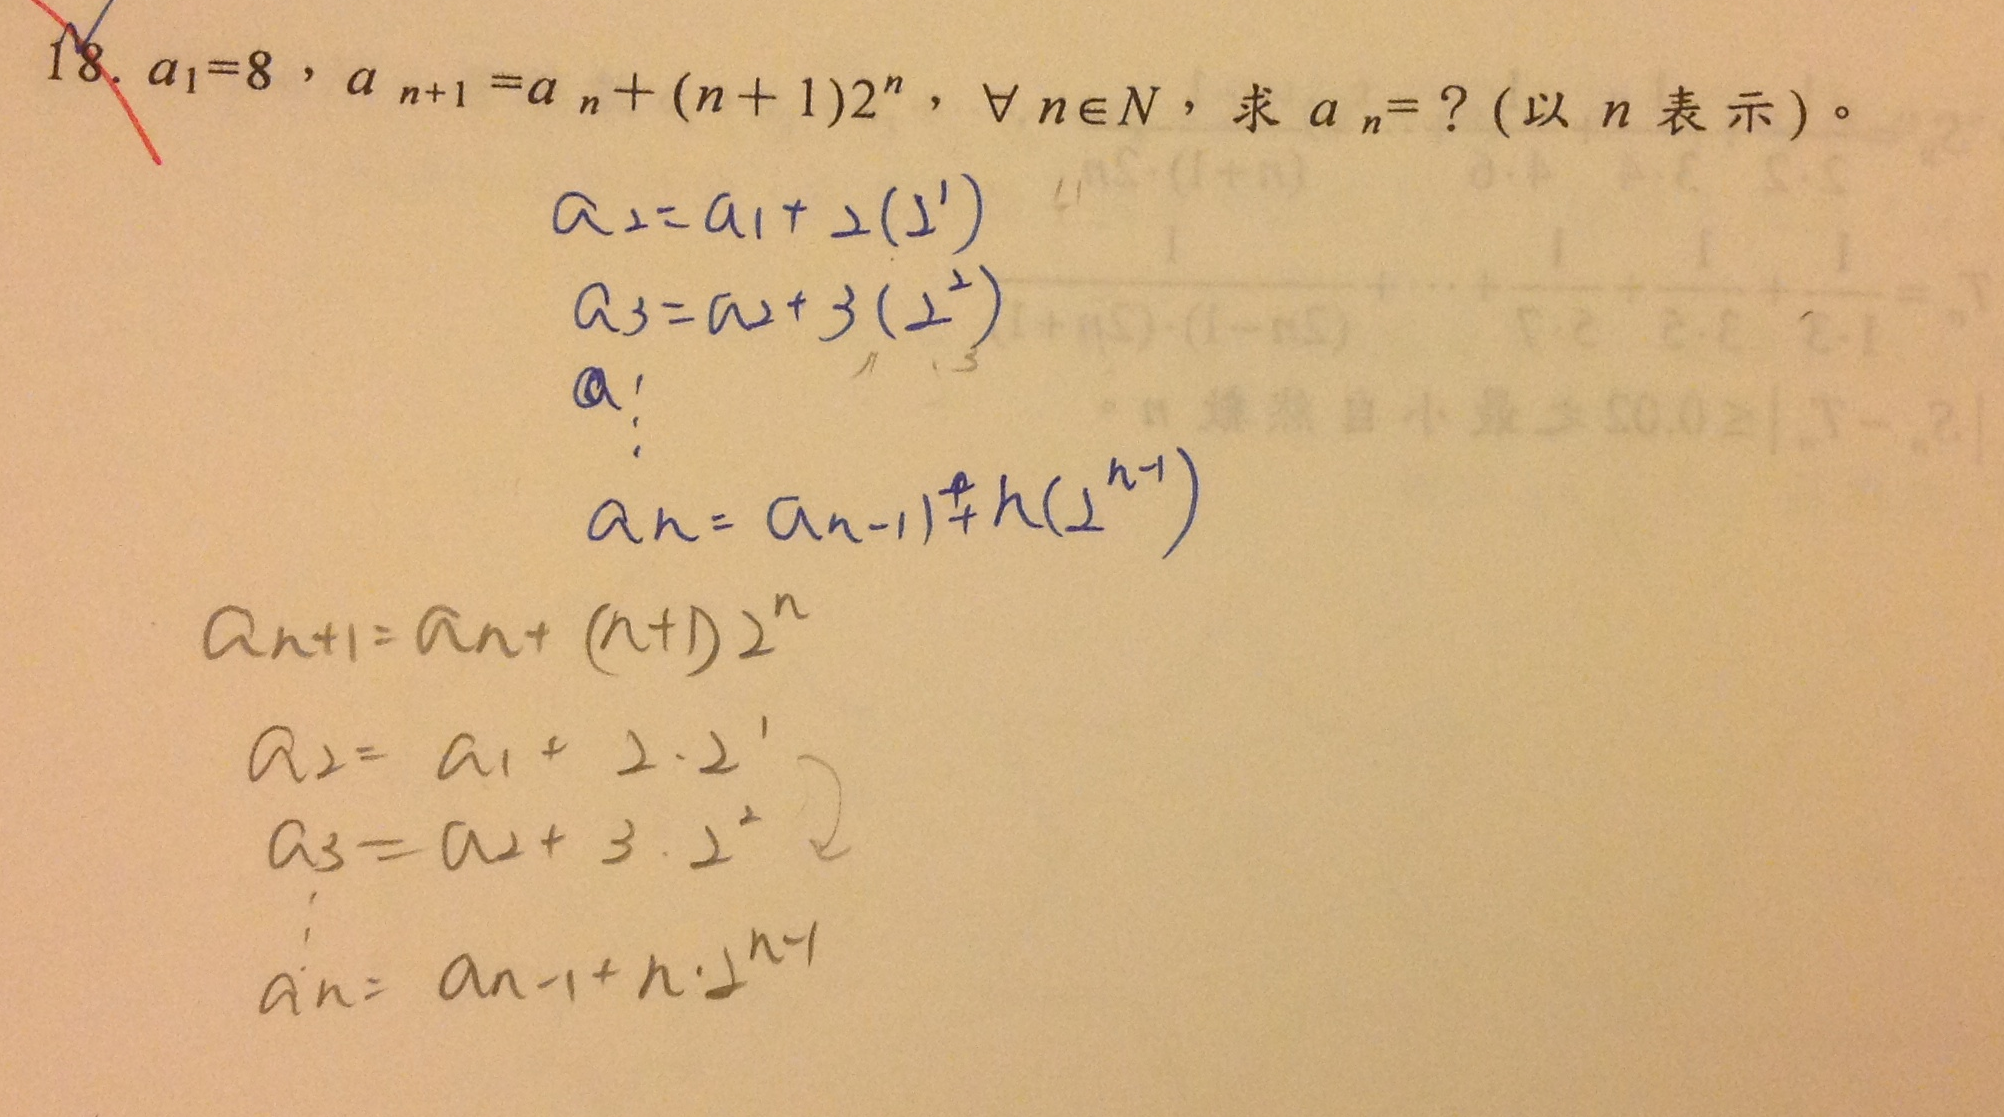 18. a₁=8，a n+1 =a n+(n+1)2ⁿ，∀ n∈N，求 a n=？(以 n 表示)。
a₂=a₁+2(2¹)
a₃=a₂+3(2²)
a⋮
aₙ=aₙ₋₁)+n(2ⁿ⁻¹)
aₙ₊₁=aₙ+(n+1)2ⁿ
a₂=a₁+2·2¹
a₃=a₂+3·2²
⋮
aₙ=aₙ₋₁+n·2ⁿ⁻¹